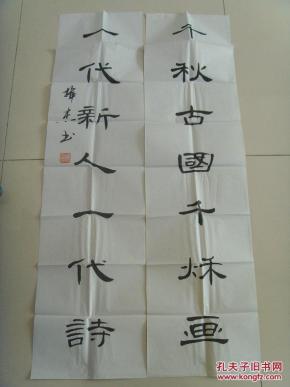 千秋古國千秌画
人代新人一代詩
书
孔夫子旧书网